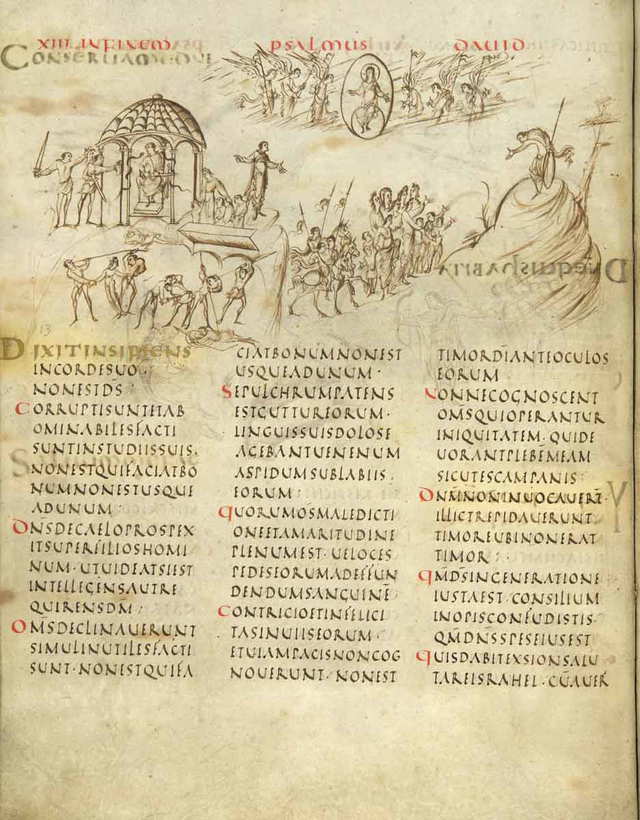 XIII INFINEM PSALMUS DAUID
DIXITINSIPIENS
INCORDESUO·
NONESTDS·
CORRUPTISUNTETAB
OMINABILESFACTI
SUNTINSTUDIISSUIS·
NONESTQUIFACIATBO
NUMNONESTUSQUE
ADUNUM·
DNSDECAELOPROSPEX
ITSUPERFILIOSHOMI
NUM·UTUIDEATSIEST
INTELLEGENSAUTRE
QUIRENSDM·
OMSDECLINAUERUNT
SIMULINUTILESFACTI
SUNT·NONESTQUIFA
CIATBONUMNONEST
USQUEADUNUM·
SEPULCHRUMPATENS
ESTGUTTUREORUM·
LINGUISSUISDOLOSE
AGEBANTUENENUM
ASPIDUMSUBLABIIS·
EORUM·
QUORUMOSMALEDICTI
ONEETAMARITUDINE
PLENUMEST·UELOCES
PEDESEORUMADEFFUN
DENDUMSANGUINĒ
CONTRICIOETINFELICI
TASINUIISEORUM·
ETUIAMPACISNONCOG
NOUERUNT·NONEST
TIMORDIANTEOCULOS
EORUM
NONNECOGNOSCENT
OMSQUIOPERANTUR
INIQUITATEM·QUIDE
UORANTPLEBEMEAM
SICUTESCAMPANIS·
DNMNONINUOCAUERT
ILLICTREPIDAUERUNT
TIMOREUBINONERAT
TIMOR·
QMDSINGENERATIONE
IUSTAEST·CONSILIUM
INOPISCONFUDISTIS·
QMDNSSPESEIUSEST
QUISDABITEXSIONSALU
TAREISRAHEL·CUAUER